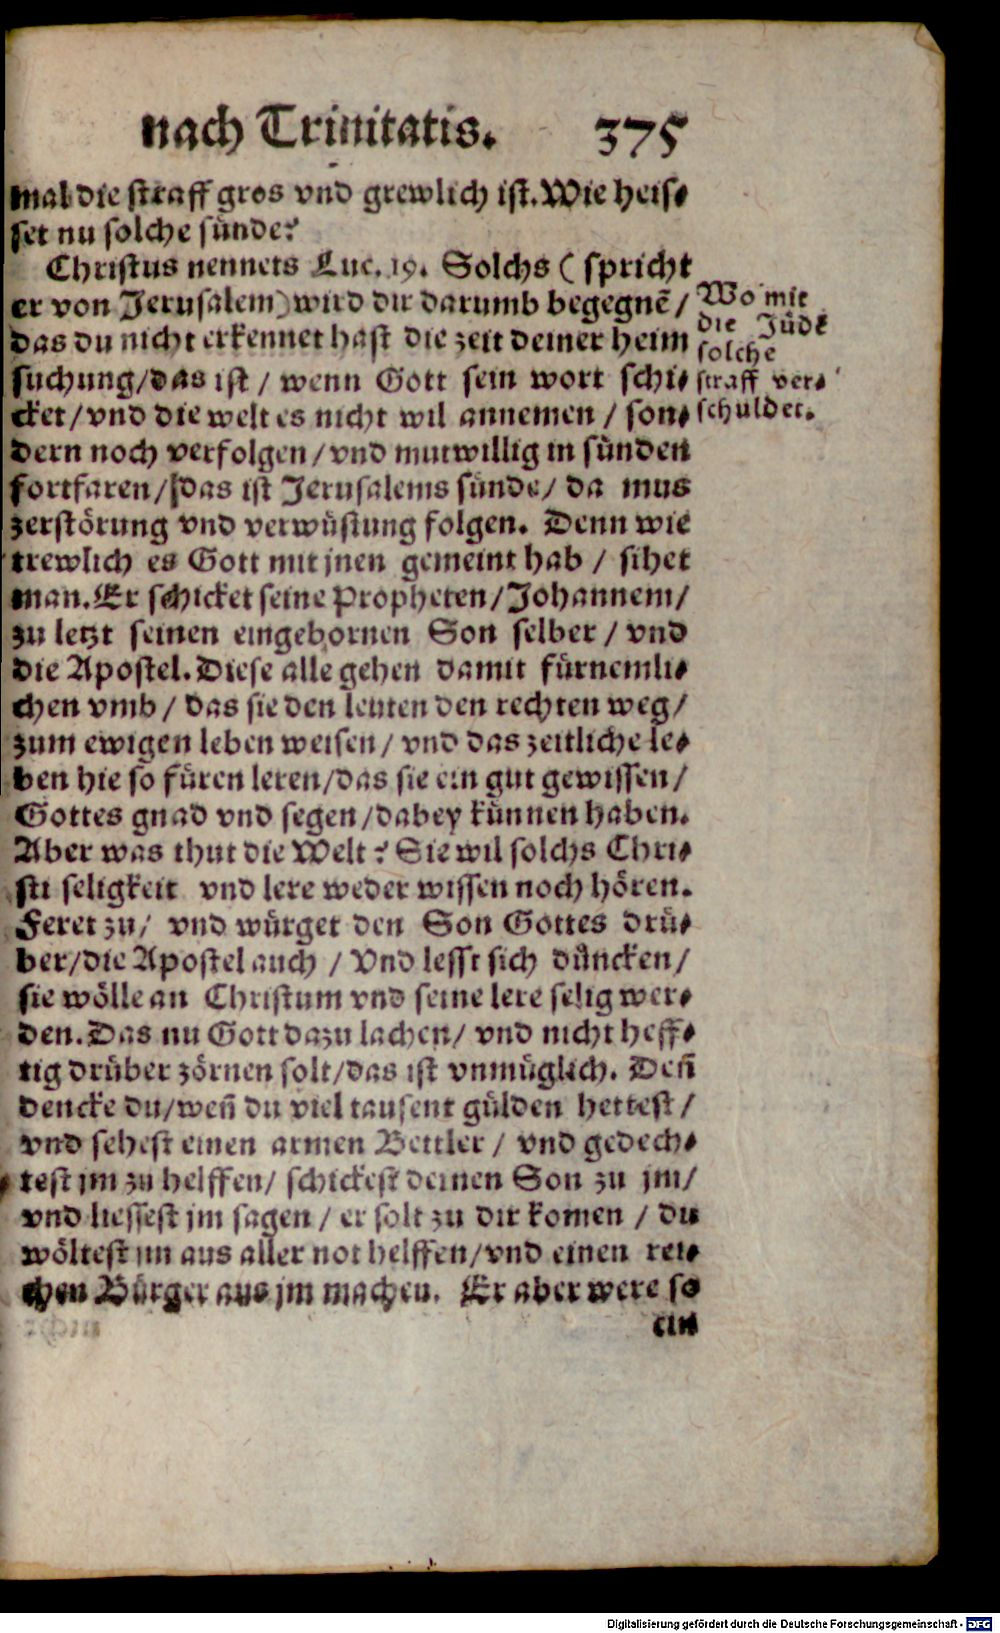 nach Trinitatis. 375
mal die straff gros vnd grewlich ist. Wie heis⸗
set nu solche sünde?
Christus nennets Luc. 19. Solchs (spricht
er von Jerusalem) wird dir darumb begegnē/
das du nicht erkennet hast die zeit deiner heim
suchung/das ist / wenn Gott sein wort schi⸗
cket/vnd die welt es nicht wil annemen / son⸗
dern noch verfolgen/vnd mutwillig in sünden
fortfaren/das ist Jerusalems sünde/ da mus
zerstörung vnd verwüstung folgen. Denn wie
trewlich es Gott mit jnen gemeint hab / sihet
man. Er schicket seine Propheten/Johannem/
zu letzt seinen eingebornen Son selber / vnd
die Apostel. Diese alle gehen damit fürnemli⸗
chen vmb / das sie den leuten den rechten weg/
zum ewigen leben weisen / vnd das zeitliche le⸗
ben hie so füren leren/das sie ein gut gewissen/
Gottes gnad vnd segen/dabey künnen haben.
Aber was thut die Welt? Sie wil solchs Chri⸗
sti seligkeit vnd lere weder wissen noch hören.
Feret zu/ vnd würget den Son Gottes drü⸗
ber/die Apostel auch / Vnd lesst sich düncken/
sie wölle an Christum vnd seine lere selig wer⸗
den. Das nu Gott dazu lachen/ vnd nicht heff⸗
tig drüber zörnen solt/das ist vnmüglich. Deñ
dencke du/weñ du viel tausent gülden hettest/
vnd sehest einen armen Bettler / vnd gedech⸗
test jm zu helffen/ schickest deinen Son zu jm/
vnd liessest jm sagen / er solt zu dir komen / du
wöltest jm aus aller not helffen/vnd einen rei⸗
chen Bürger aus jm machen. Er aber were so
ein
Wo mit
die Jüdē
solche
straff ver⸗
schuldet.
Digitalisierung gefördert durch die Deutsche Forschungsgemeinschaft - DFG